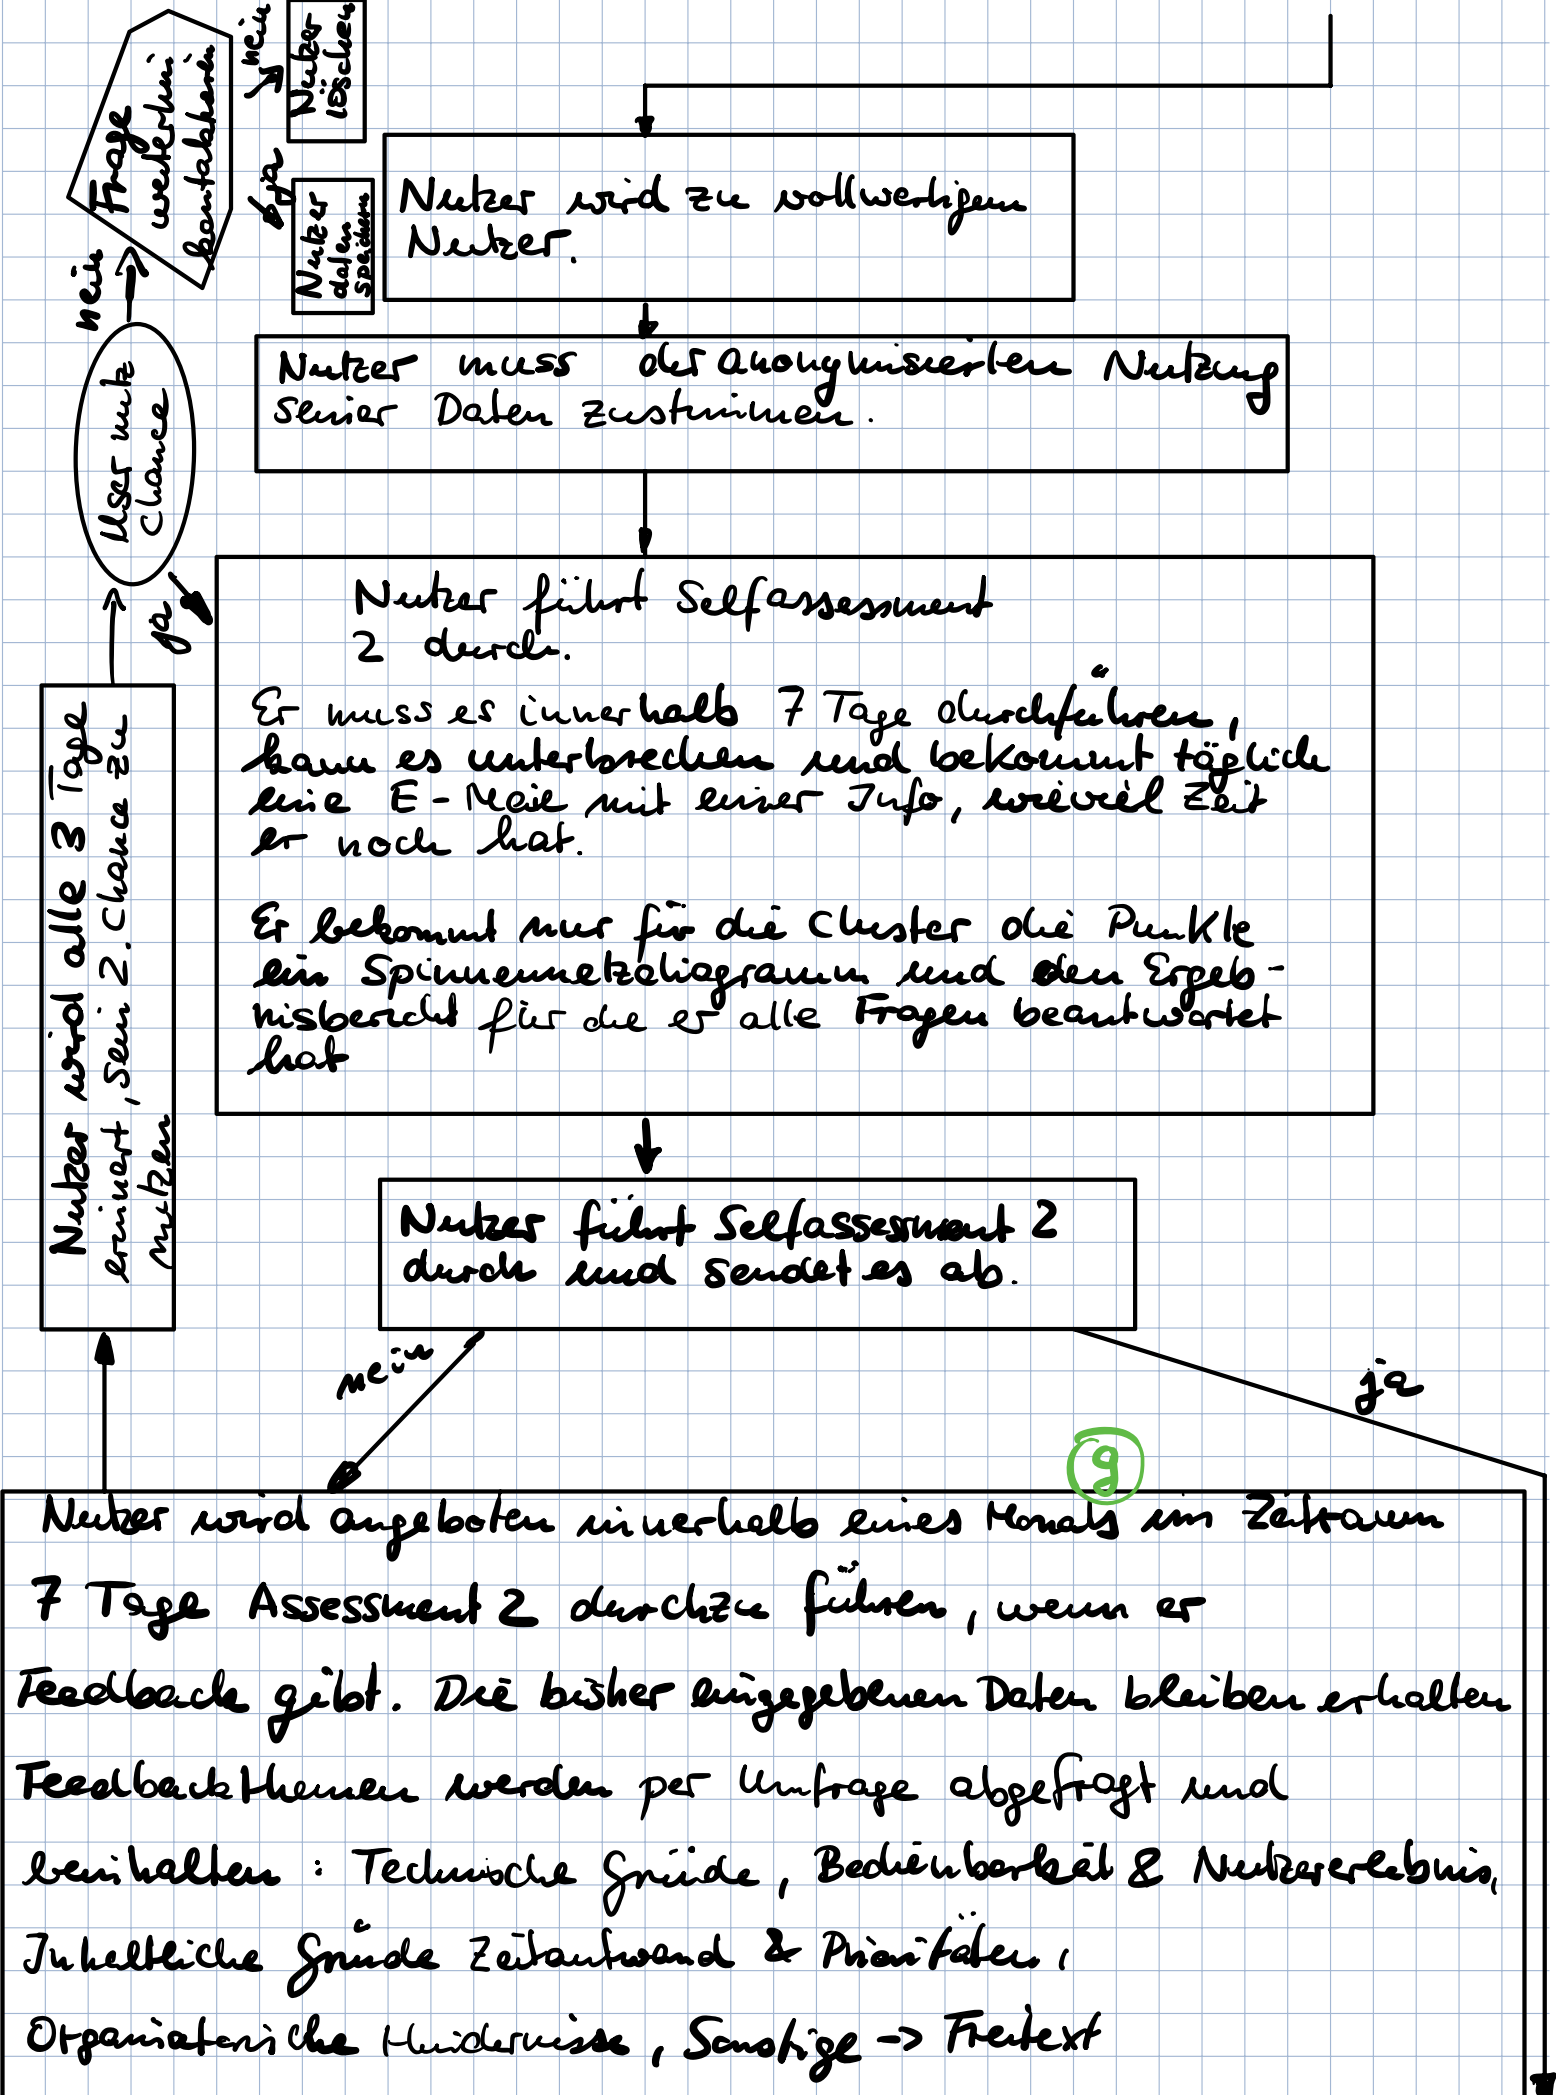 Frage
weiterhin
kontaktieren
nein
Nutzer
löschen
ja
Nutzer
daten
speichern
Nutzer wird zu vollwertigem
Nutzer.
nein
User nutz
Chance
ja
Nutzer muss der anonymisierten Nutzung
seiner Daten zustimmen.
Nutzer führt Selfassessment
2 durch.
Er muss es innerhalb 7 Tage durchführen,
kann es unterbrechen und bekommt täglich
eine E-Mail mit einer Info, wieviel Zeit
er noch hat.
Er bekommt nur für die Cluster die Punkte
ein Spinnennetzdiagramm und den Ergeb-
nisbericht für die er alle Fragen beantwortet
hat
Nutzer wird alle 3 Tage
erinnert, sein 2. Chance zu
nutzen
Nutzer führt Selfassessment 2
durch und sendet es ab.
nein
ja
9
Nutzer wird angeboten innerhalb eines Monats im Zeitraum
7 Tage Assessment 2 durchzu führen, wenn er
Feedback gibt. Die bisher eingegebenen Daten bleiben erhalten
Feedbackthemen werden per Umfrage abgefragt und
beinhalten: Technische Gründe, Bedienbarkeit & Nutzererlebnis,
Inhaltliche Gründe Zeitaufwand & Prioritäten,
Organisatorische Hindernisse, Sonstige -> Freitext